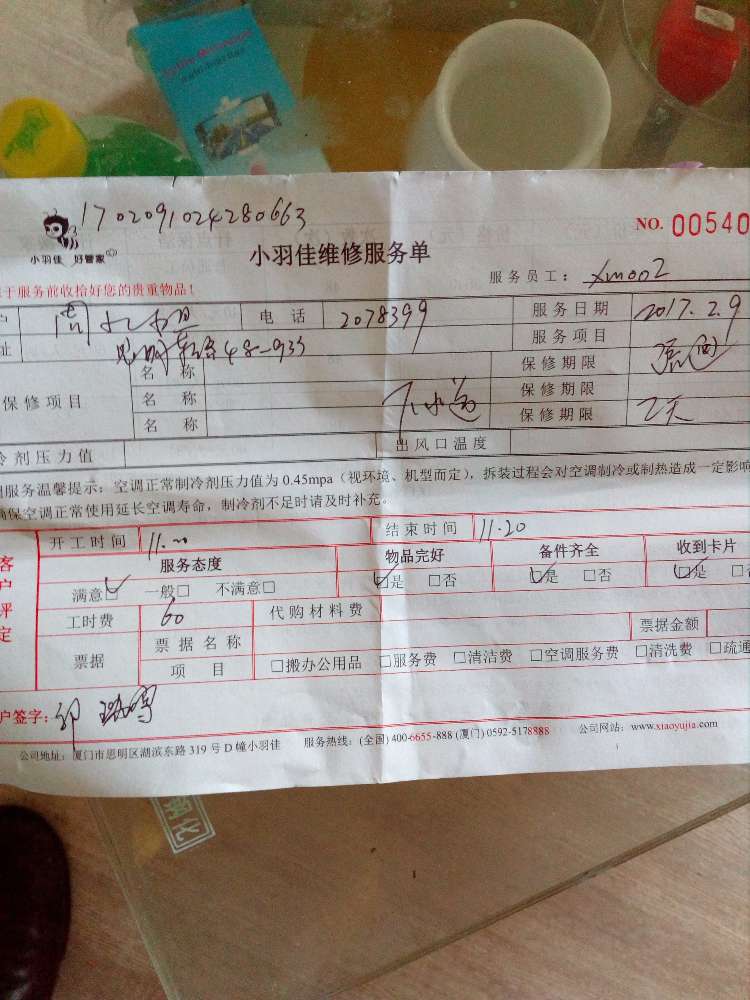 1702091024280663
小羽佳 好管家
小羽佳维修服务单
NO. 00540
服务员工： xm002
于服务前收拾好您的贵重物品！
电 话 2078399 服务日期 2017.2.9
址 48-933 服务项目 疏通
名 称 保修期限
保修项目 名 称 下水道 保修期限
名 称 保修期限 2天
冷剂压力值 出风口温度
服务温馨提示：空调正常制冷剂压力值为 0.45mpa（视环境、机型而定），拆装过程会对空调制冷或制热造成一定影响
确保空调正常使用延长空调寿命，制冷剂不足时请及时补充。
客户评定
开工时间 11.00 结束时间 11.20
服务态度 物品完好 备件齐全 收到卡片
满意☑ 一般□ 不满意□ ☑是 □否 ☑是 □否 ☑是 □否
工时费 60 代购材料费
票据 票据名称 票据金额
项 目 □搬办公用品 □服务费 □清洁费 □空调服务费 □清洗费 □疏通
户签字：邹
公司地址：厦门市思明区湖滨东路 319 号 D 幢小羽佳 服务热线：(全国) 400-6655-888 (厦门) 0592-5178888 公司网站：www.xiaoyujia.com
钢化